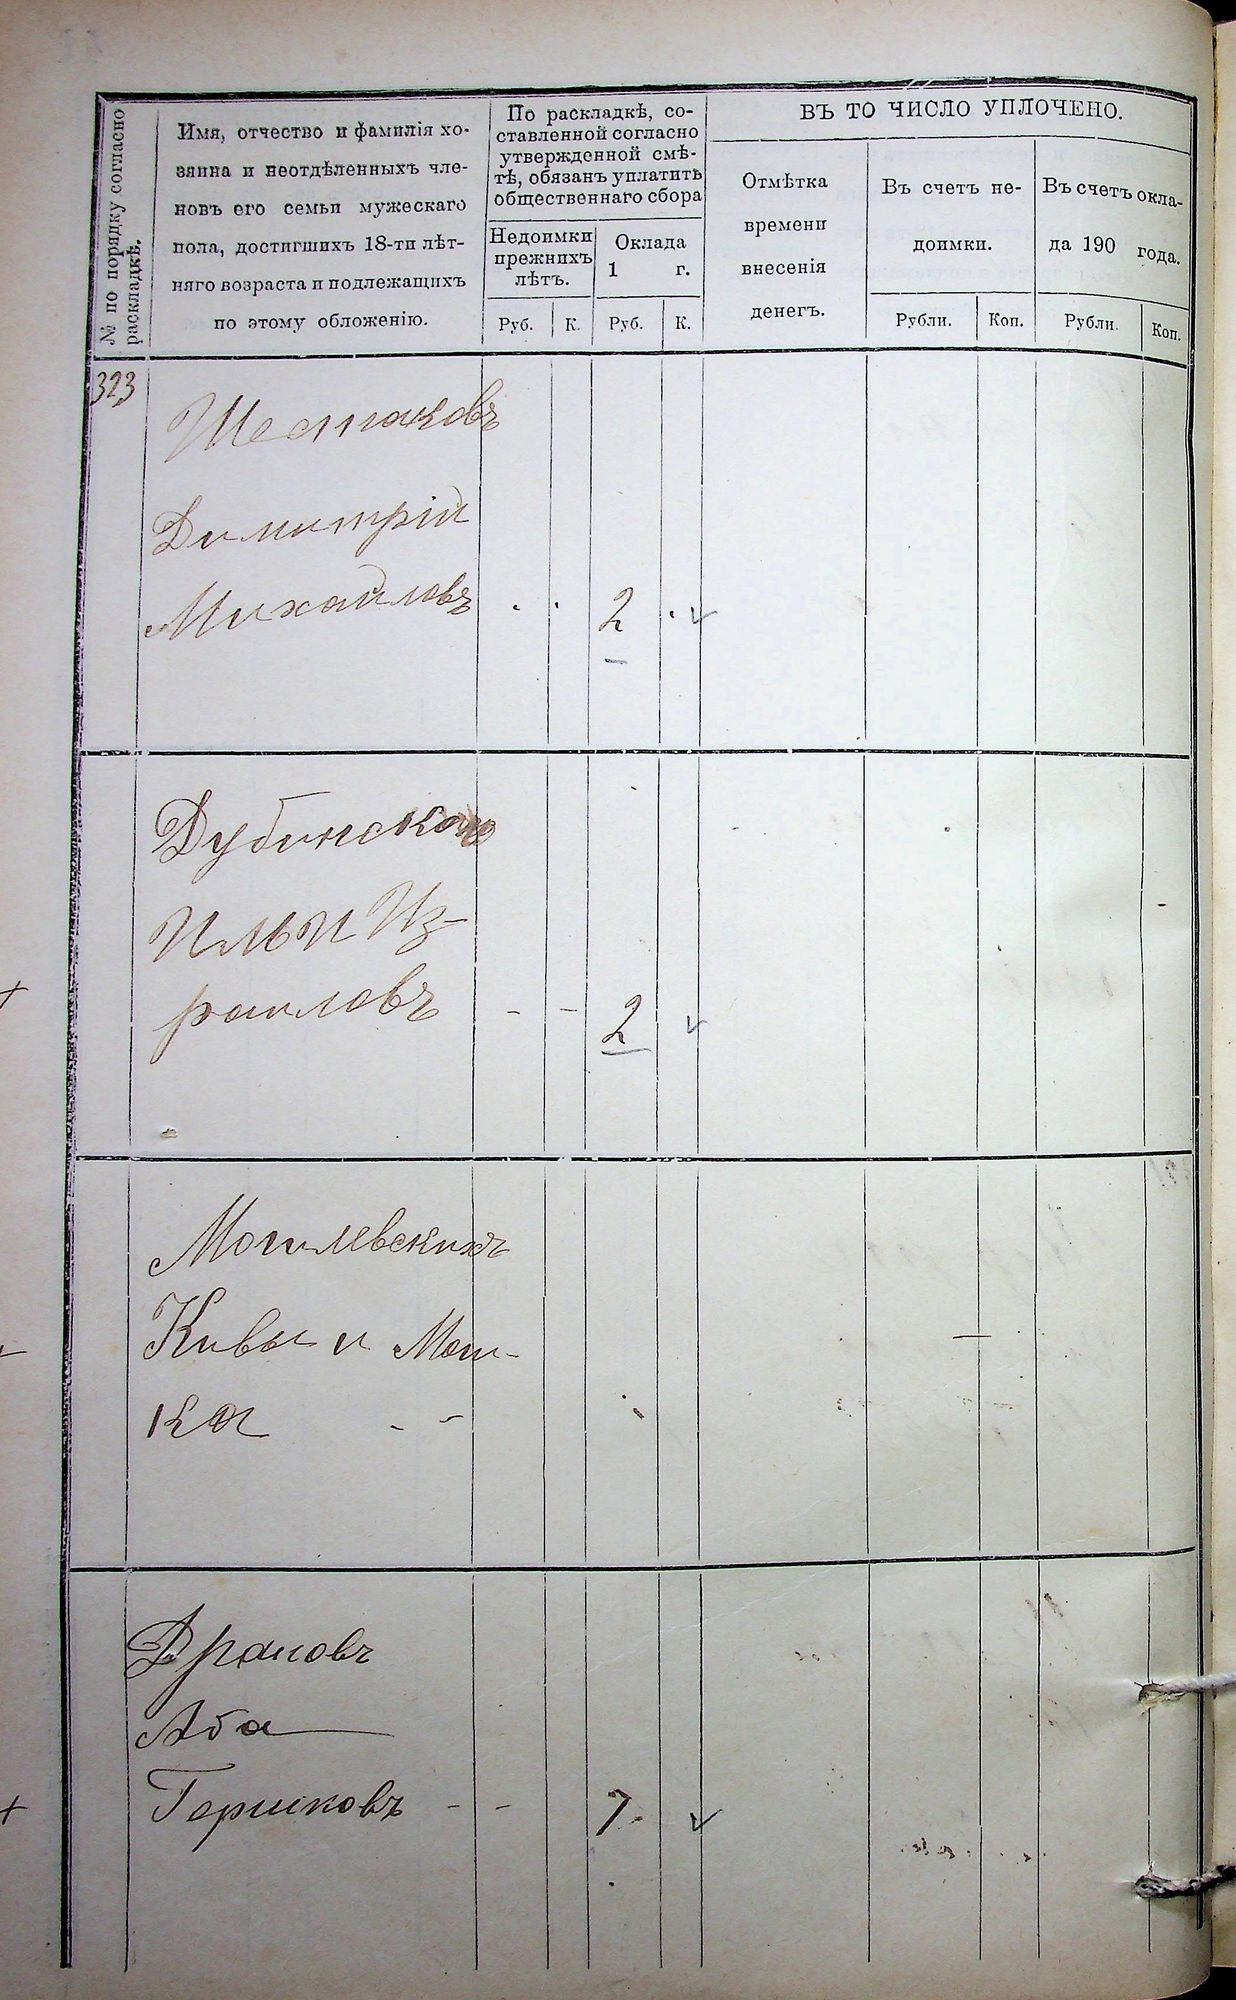 № по порядку согласно
раскладкѣ.
Имя, отчество и фамилія хо-
зяина и неотдѣленныхъ чле-
новъ его семьи мужескаго
пола, достигшихъ 18-ти лѣт-
няго возраста и подлежащихъ
по этому обложенію.
По раскладкѣ, со-
ставленной согласно
утвержденной смѣ-
тѣ, обязанъ уплатить
общественнаго сбора
Недоимки
прежнихъ
лѣтъ.
Оклада
1 г.
Руб.
К.
Руб.
К.
ВЪ ТО ЧИСЛО УПЛОЧЕНО.
Отмѣтка
времени
внесенія
денегъ.
Въ счетъ не-
доимки.
Въ счетъ окла-
да 190 года.
Рубли.
Коп.
Рубли.
Коп.
323
Шестаковъ
Димитрій
Михайловъ 2
Дубинского
Ильи Из-
раиловъ - - 2
Могилевскихъ
Кивы и Мош-
ка - -
Драновъ
Аба
Гершковъ - - 7